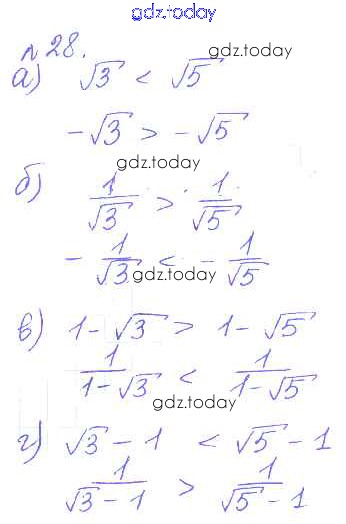 gdz.today
№28.
gdz.today
а) √3 < √5
-√3 > -√5
gdz.today
б) 1/√3 > 1/√5
-1/√3 < -1/√5
gdz.today
в) 1-√3 > 1-√5
1/(1-√3) < 1/(1-√5)
gdz.today
г) √3-1 < √5-1
1/(√3-1) > 1/(√5-1)
gdz.today